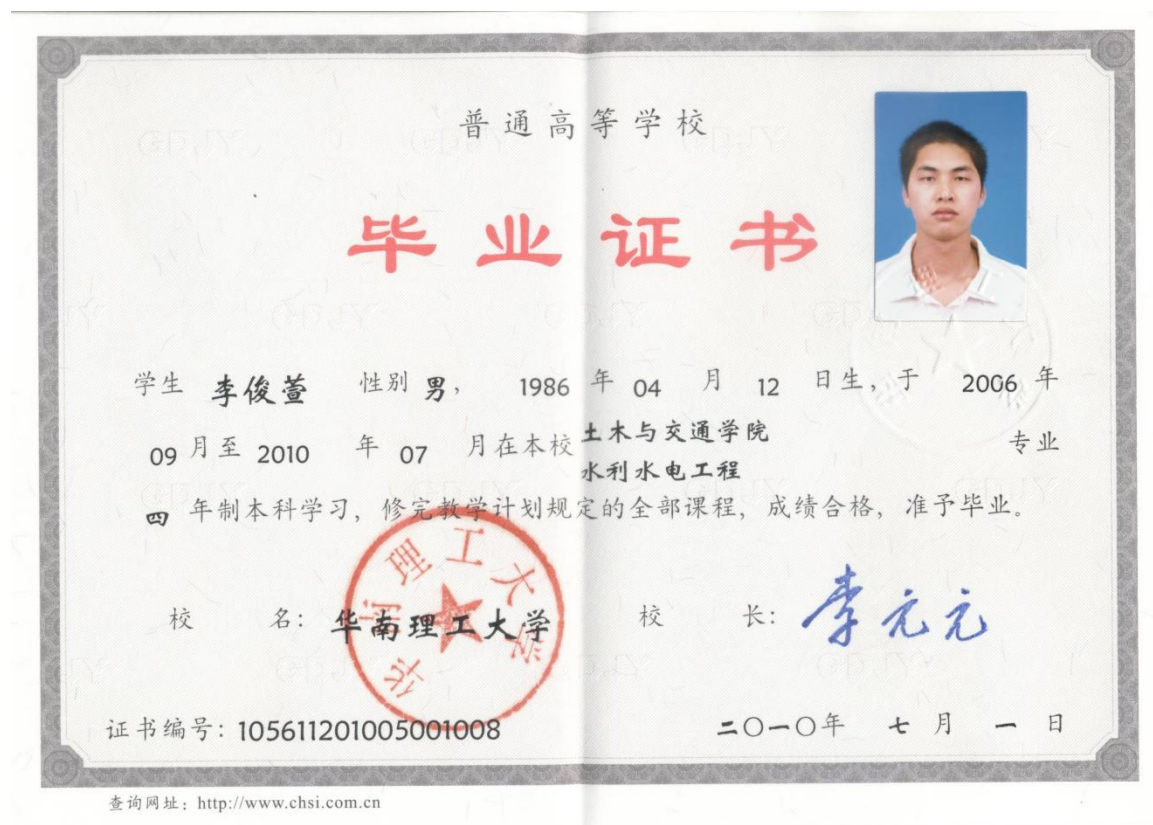 普通高等学校
毕业证书
学生 李俊萱 性别 男， 1986 年 04 月 12 日生，于 2006 年
09 月至 2010 年 07 月在本校 土木与交通学院 水利水电工程 专业
四 年制本科学习，修完教学计划规定的全部课程，成绩合格，准予毕业。
校 名：华南理工大学 校 长：李元元
华南理工大学
证书编号：105611201005001008 二〇一〇年 七 月 一 日
查询网址：http://www.chsi.com.cn